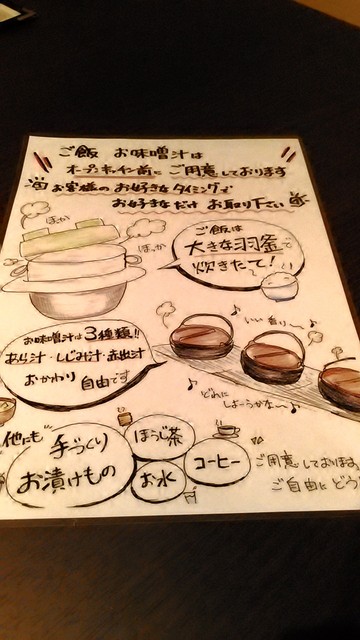 ご飯 お味噌汁は
オープンキッチン前に ご用意しております
お客様の お好きなタイミングで
お好きなだけ お取り下さい
ほか
ほっか
ご飯は
大きな羽釜で
炊きたて!
お味噌汁は3種類!!
あら汁・しじみ汁・赤出汁
おかわり 自由です
いい香り〜♪
どれに
しよーうかな〜♪
他にも
手づくり
お漬けもの
ほうじ茶
お水
コーヒー
ご用意しております。
ご自由に どう